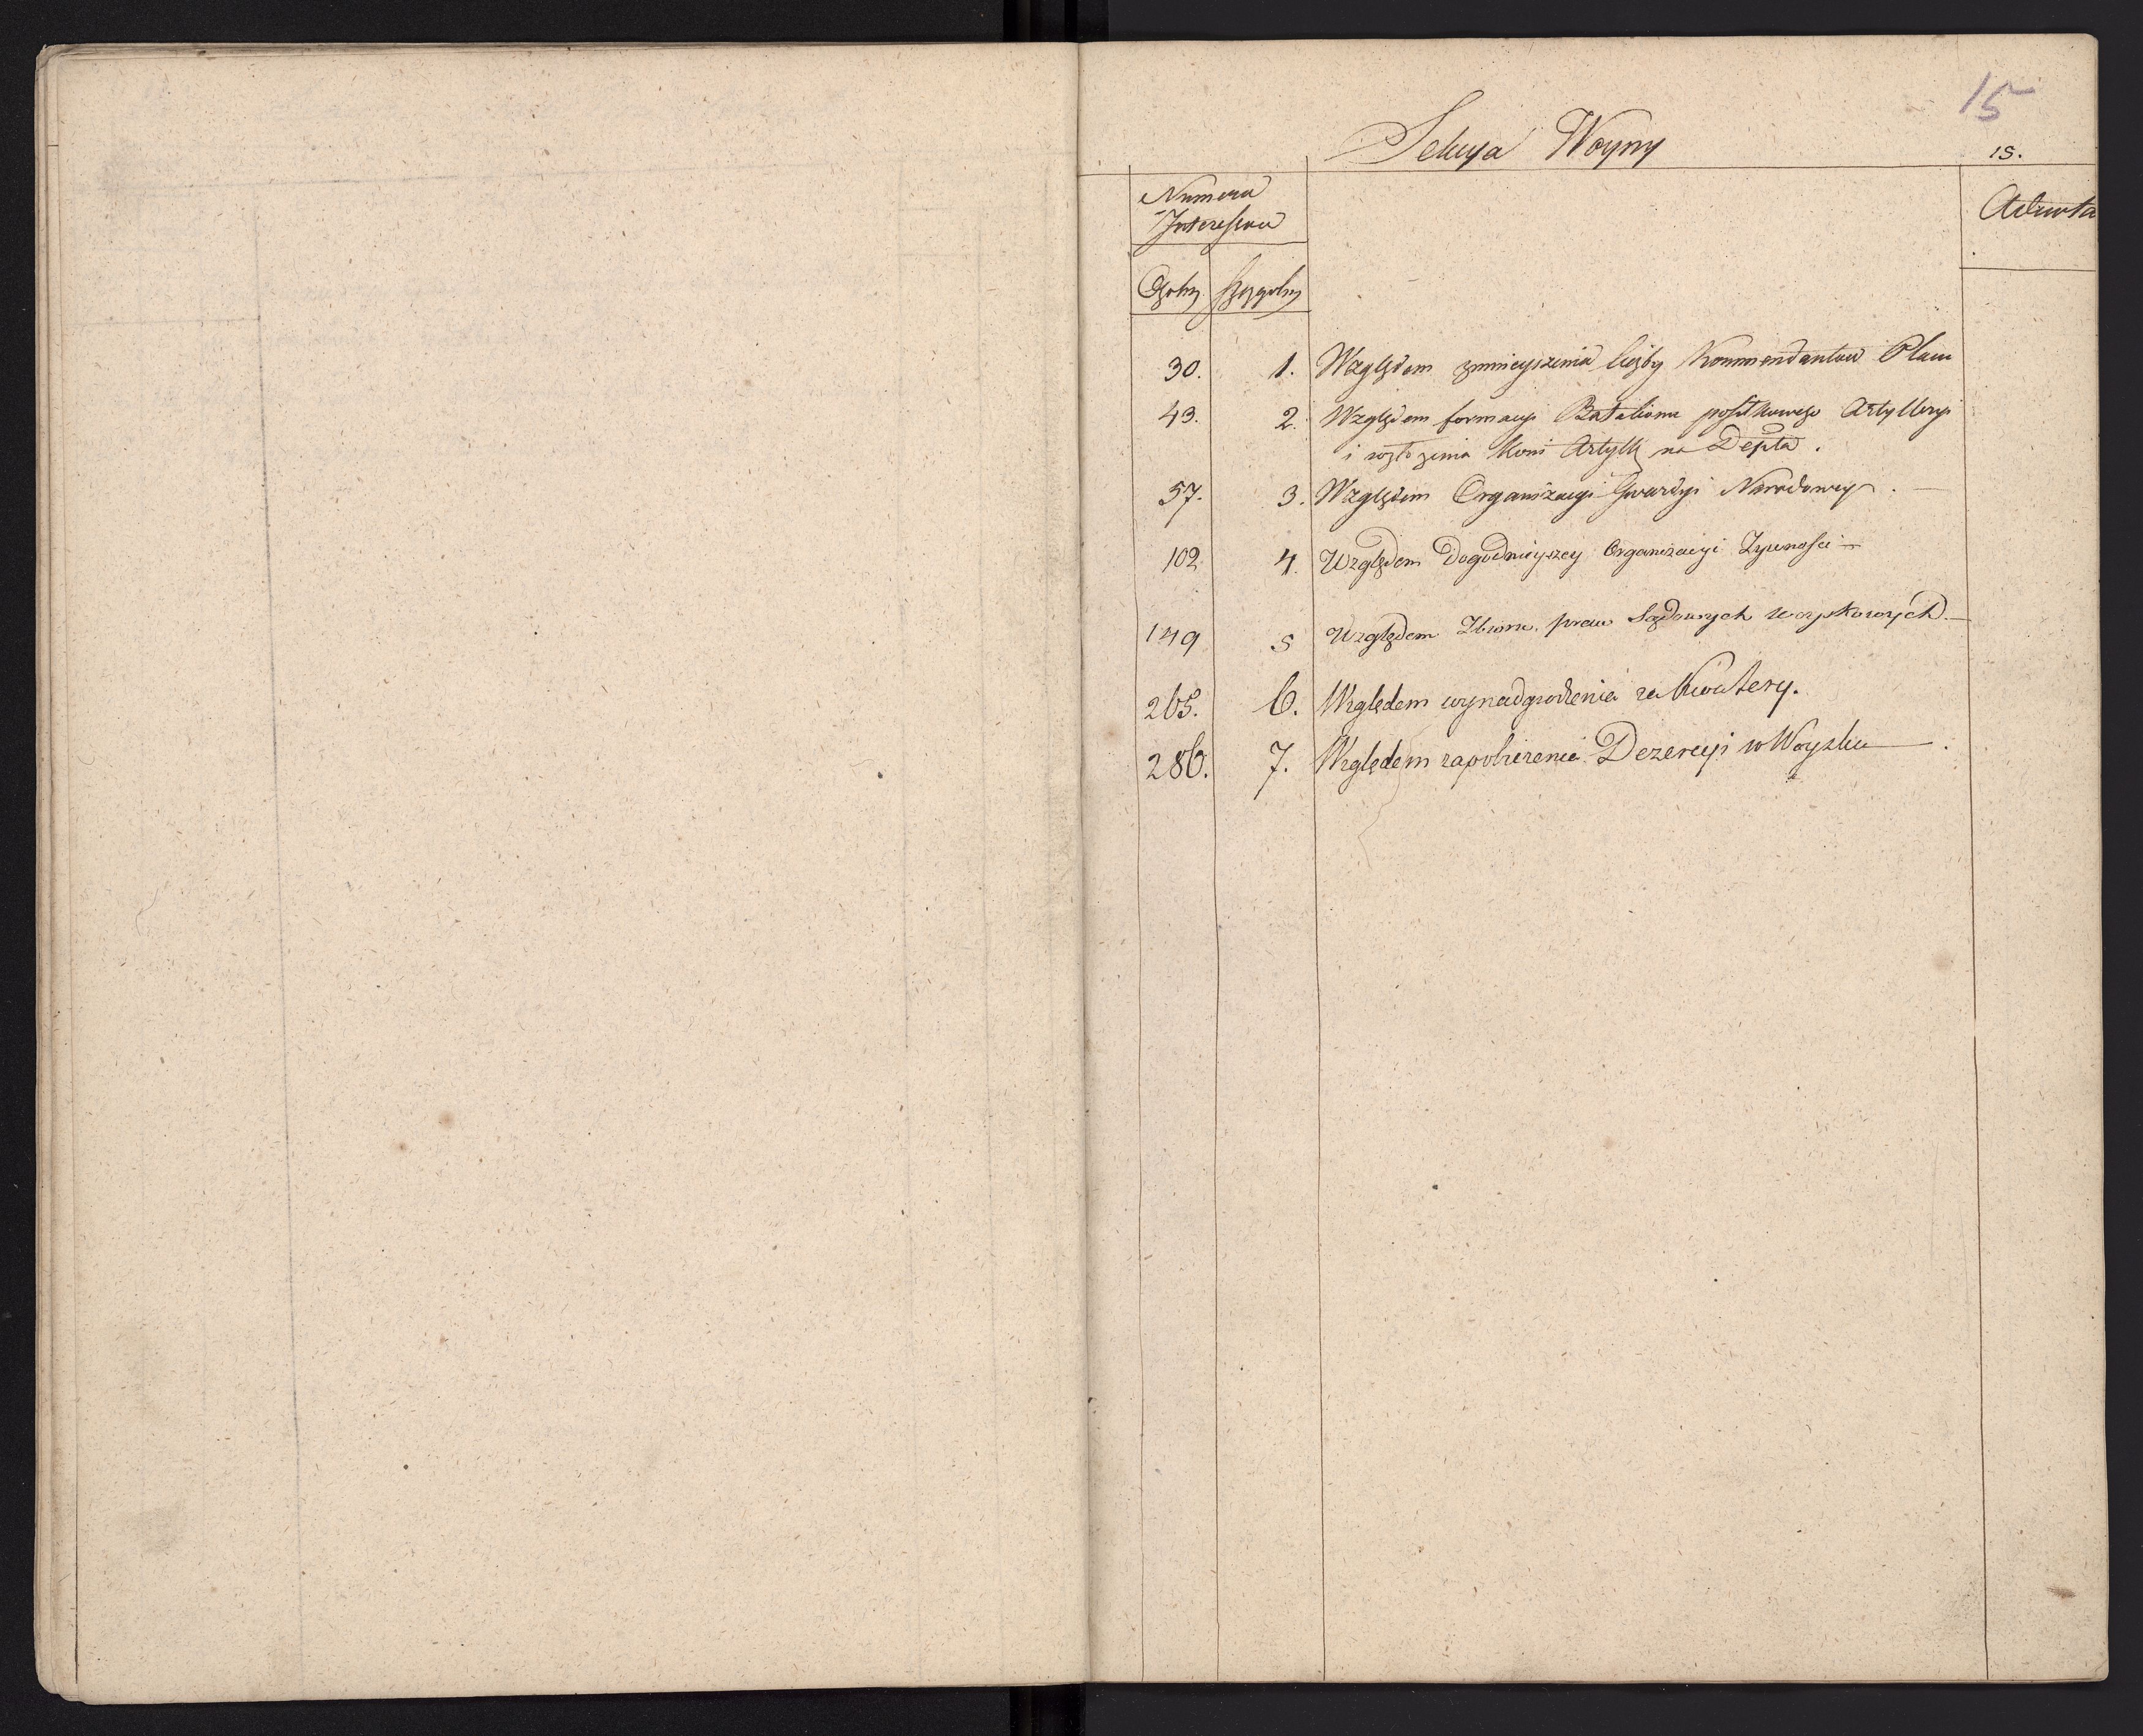 15
Sekcya Woyny
15.
Numera
Interessów
Adnota
Ogólny Szczególny
30. 1. Względem zmnieyszenia liczby Kommendantów Placu
43. 2. Względem formacyi Batalionu posiłkowego Artylleryi
i rozłożenia koni Artyll. na Depta.
57. 3. Względem Organizacyi Gwardyi Narodowey. —
102 4. Względem Dogodnieyszey Organizacyi Żywności —
149 5 Względem Zbioru praw Sądowych woyskowych. —
265. 6. Względem wynadgrodzenia za Kwatery.
286. 7. Względem zapobieżenia Dezercyi w Woysku — .